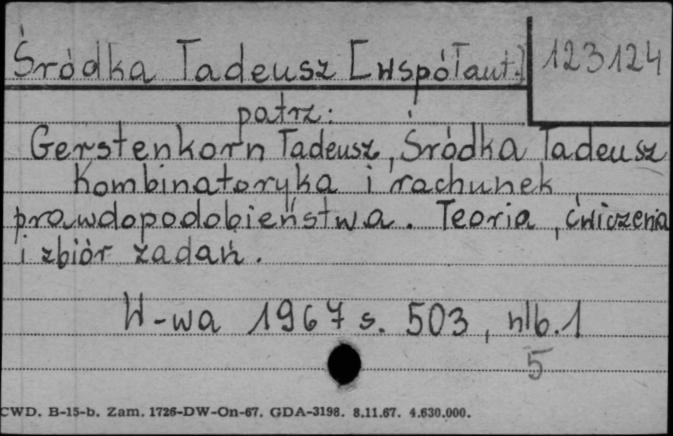 Śródka Tadeusz [współaut.] 123124
patrz:
Gerstenkorn Tadeusz, Śródka Tadeusz
Kombinatoryka i rachunek
prawdopodobieństwa. Teoria, ćwiczenia
i zbiór zadań.
W-wa 1967 s. 503, nlb. 1
5
CWD. B-15-b. Zam. 1726-DW-On-67. GDA-3198. 8.11.67. 4.630.000.